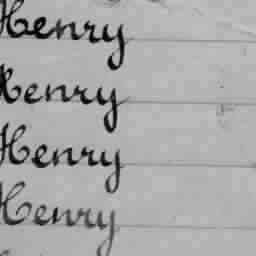 Henry
Henry
Henry
Henry